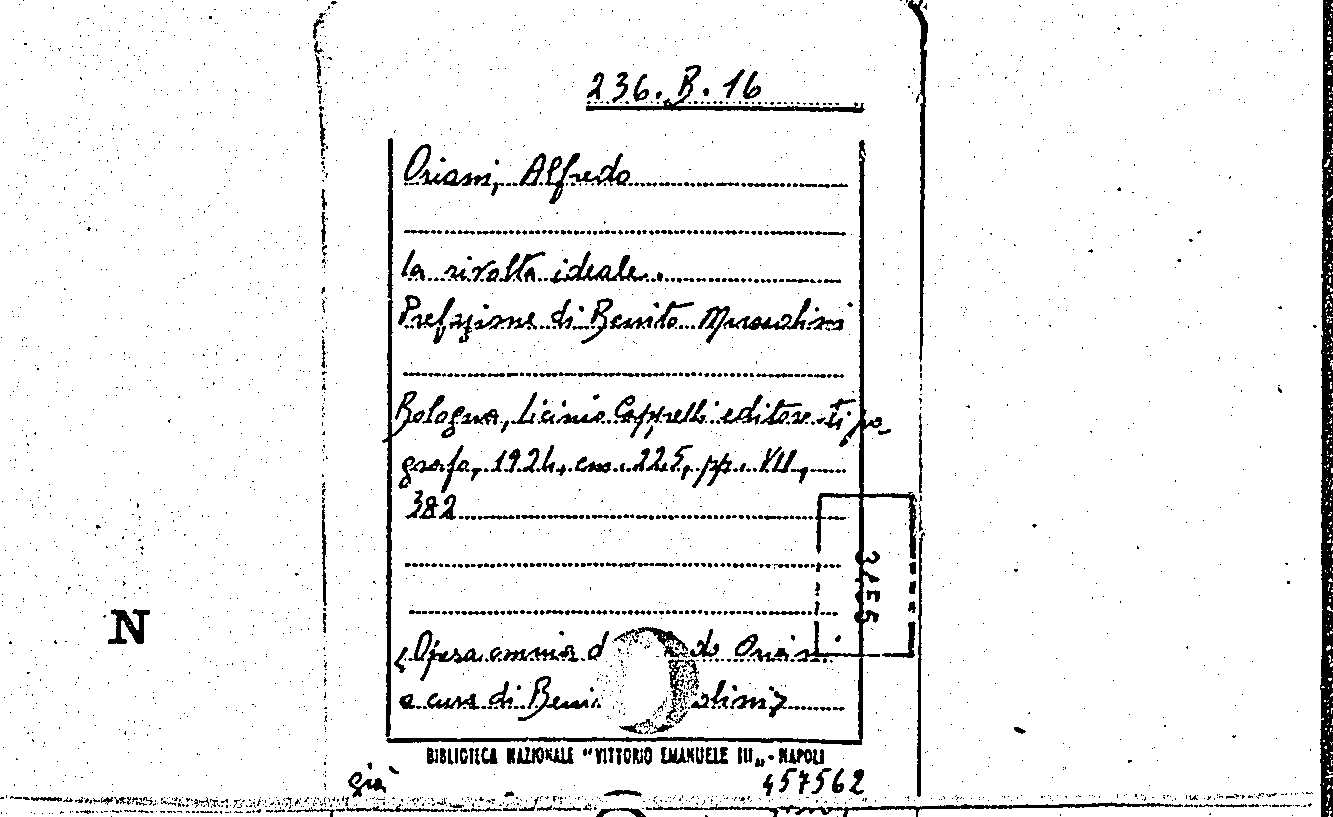 236. B. 16
Oriani, Alfredo
la rivolta ideale..
Prefazione di Benito Mussolini
Bologna, Licinio Cappelli editore-tipo-
grafo, 1924, cm. 22,5, pp. VII,
382
3455
N
(Opera omnia d do Oriani
a cura di Beni olini)
BIBLIOTECA NAZIONALE "VITTORIO EMANUELE III„ - NAPOLI
già 457562